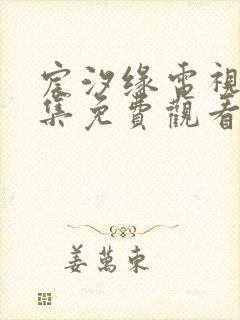 宸汐缘電視
集免費觀看
姜萬東